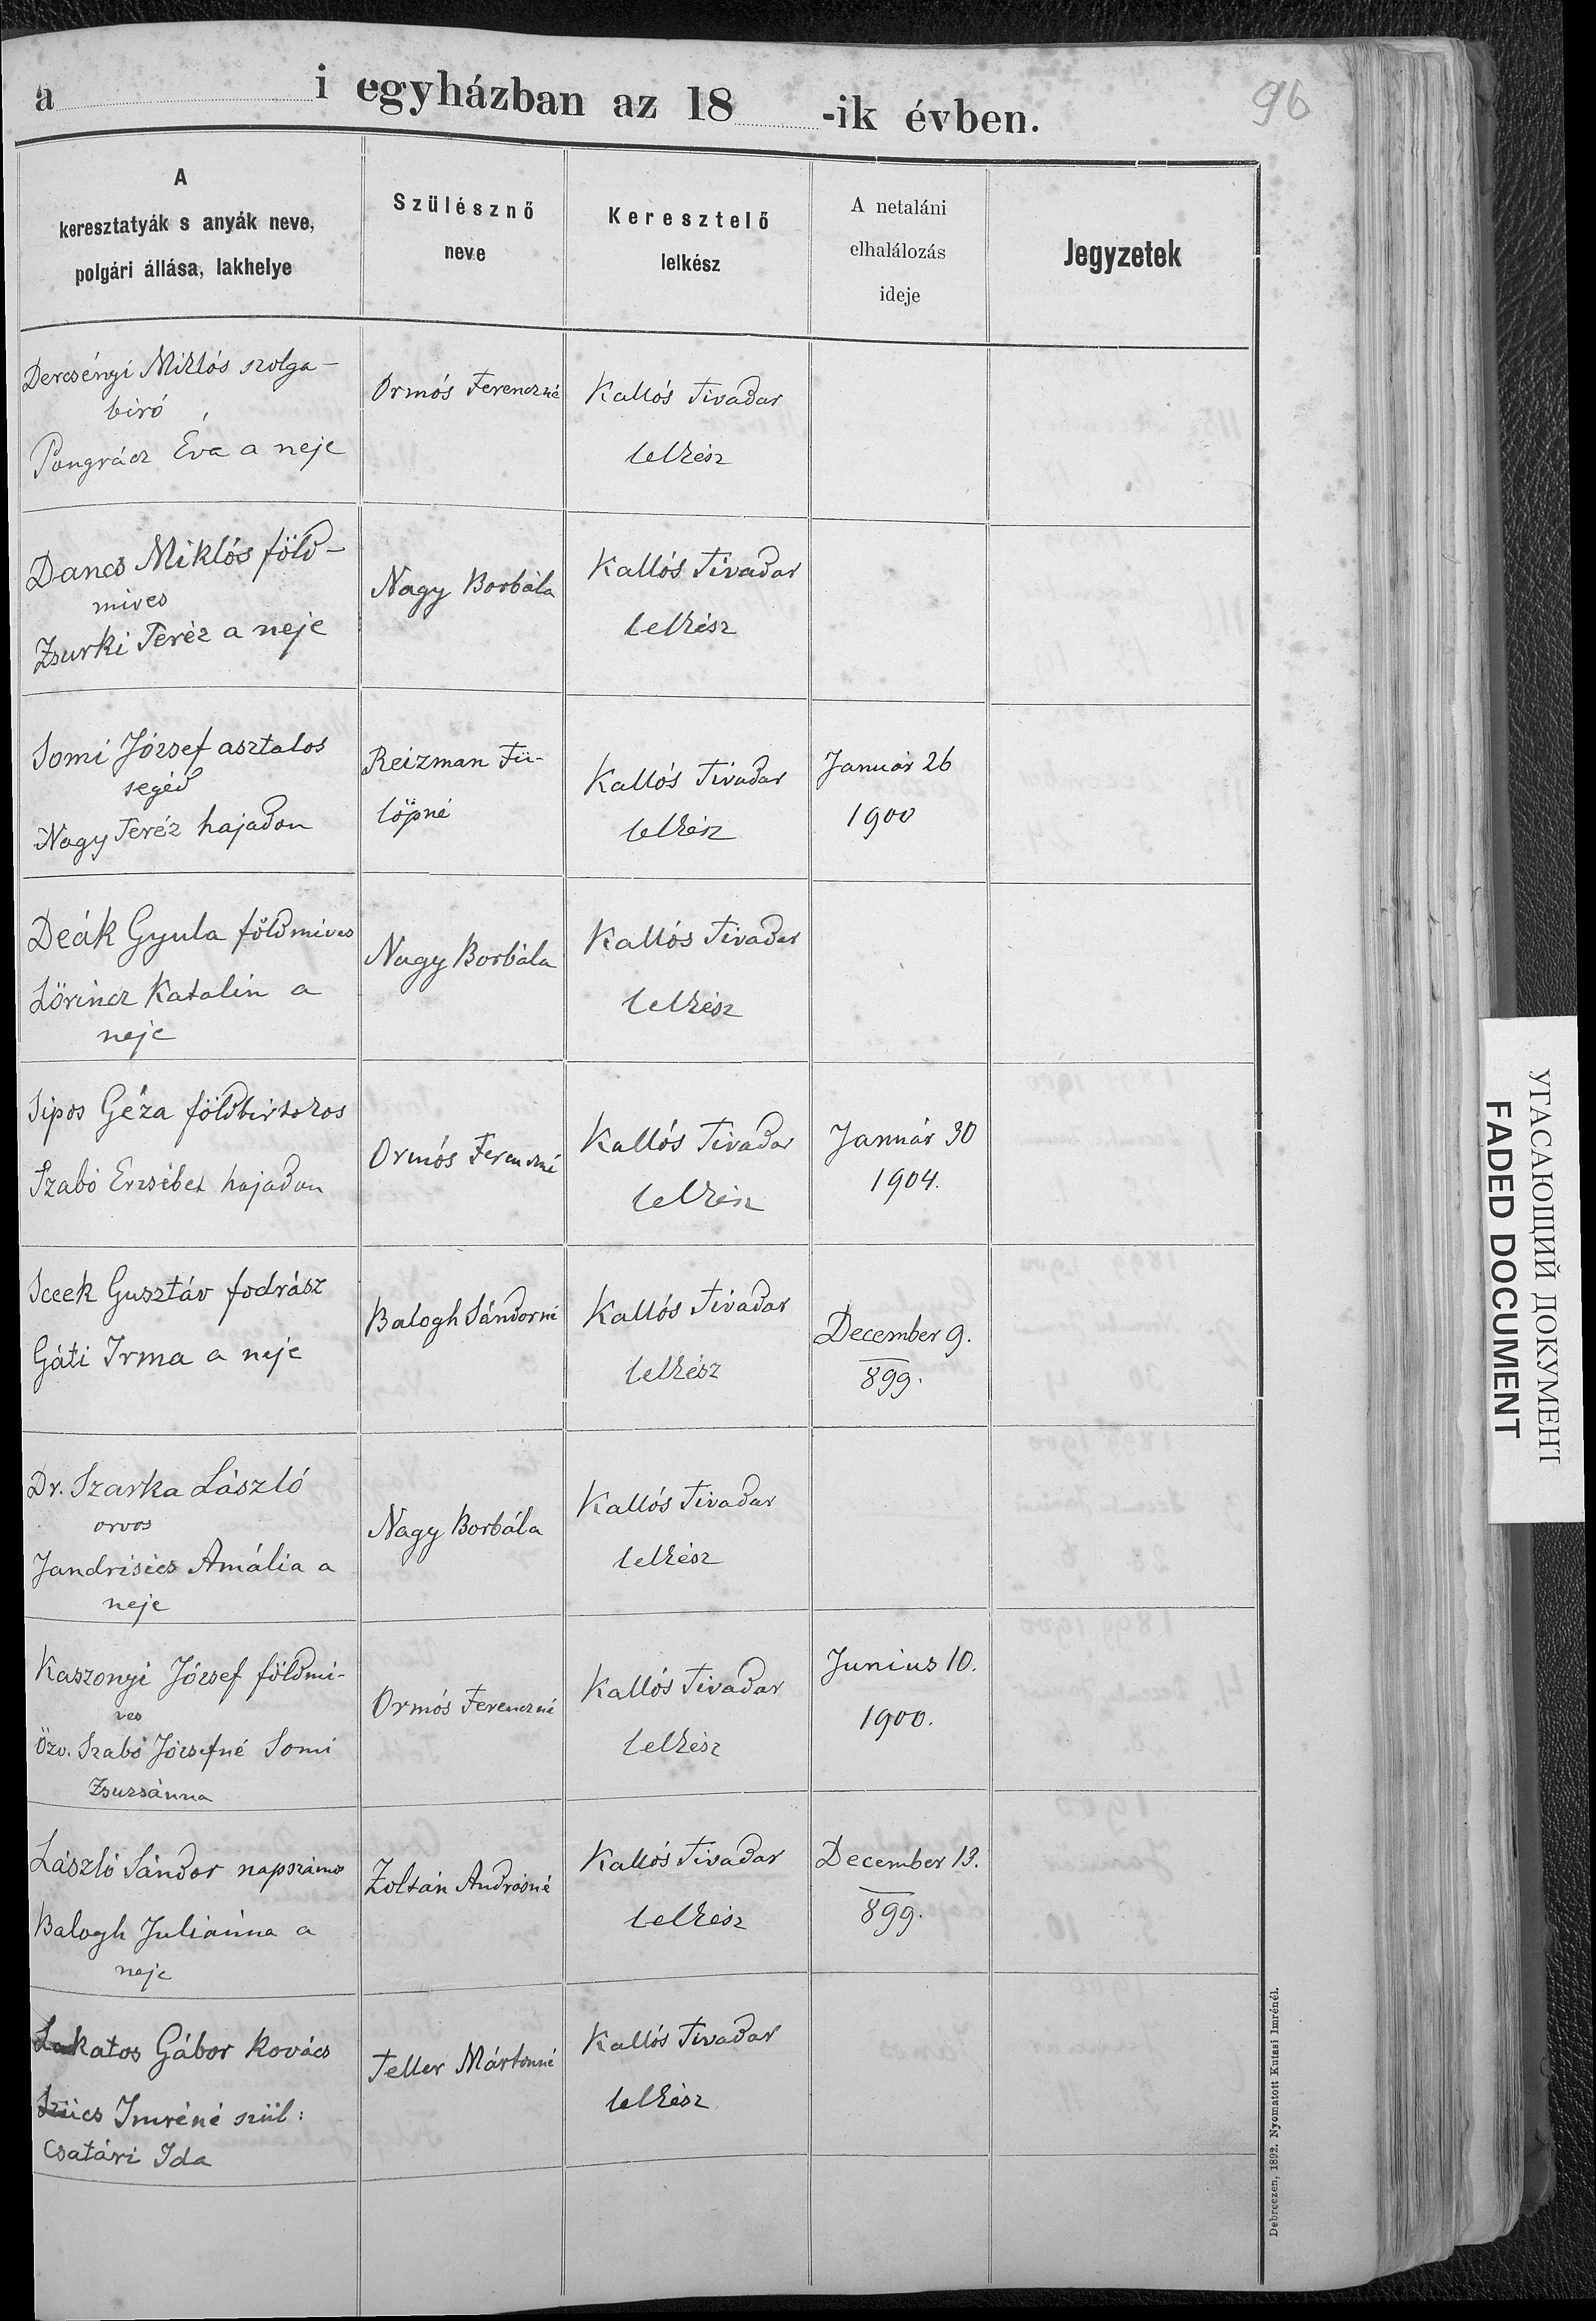 a i egyházban az 18 -ik évben.
96
A
keresztatyák s anyák neve,
polgári állása, lakhelye
Szülésznő
neve
Keresztelő
lelkész
A netaláni
elhalálozás
ideje
Jegyzetek
Dercsényi Miklós szolga-
biró
Pongrácz Éva a neje
Ormós Ferenczné
Kallós Tivadar
lelkész
Dancs Miklós föld-
mives
Zsurki Teréz a neje
Nagy Borbála
Kallós Tivadar
lelkész
Somi József asztalos
segéd
Nagy Teréz hajadon
Reizman Fü-
löpné
Kallós Tivadar
lelkész
Január 26
1900
Deák Gyula földmives
Lörincz Katalin a
neje
Nagy Borbála
Kallós Tivadar
lelkész
Sipos Géza földbirtokos
Szabó Erzsébet hajadon
Ormós Ferenczné
Kallós Tivadar
lelkész
Január 30
1904.
Gusztáv fodrász
Gáti Irma a neje
Balogh Sándorné
Kallós Tivadar
lelkész
December 9.
899.
Dr. Szarka László
orvos
Jandrisics Amália a
neje
Nagy Borbála
Kallós Tivadar
lelkész
Kaszonyi József földmi-
ves
Özv. Szabó Józsefné Somi
Zsuzsánna
Ormós Ferenczné
Kallós Tivadar
lelkész
Junius 10.
1900.
László Sándor napszámos
Balogh Juliánna a
neje
Zoltán Andrásné
Kallós Tivadar
lelkész
December 13.
899.
Lakatos Gábor kovács
Szücs Imréné szül:
Csatári Ida
Teller Mártonné
Kallós Tivadar
lelkész
Debreczen, 1892. Nyomatott Kutasi Imrénél.
УГАСАЮЩИЙ ДОКУМЕНТ
FADED DOCUMENT